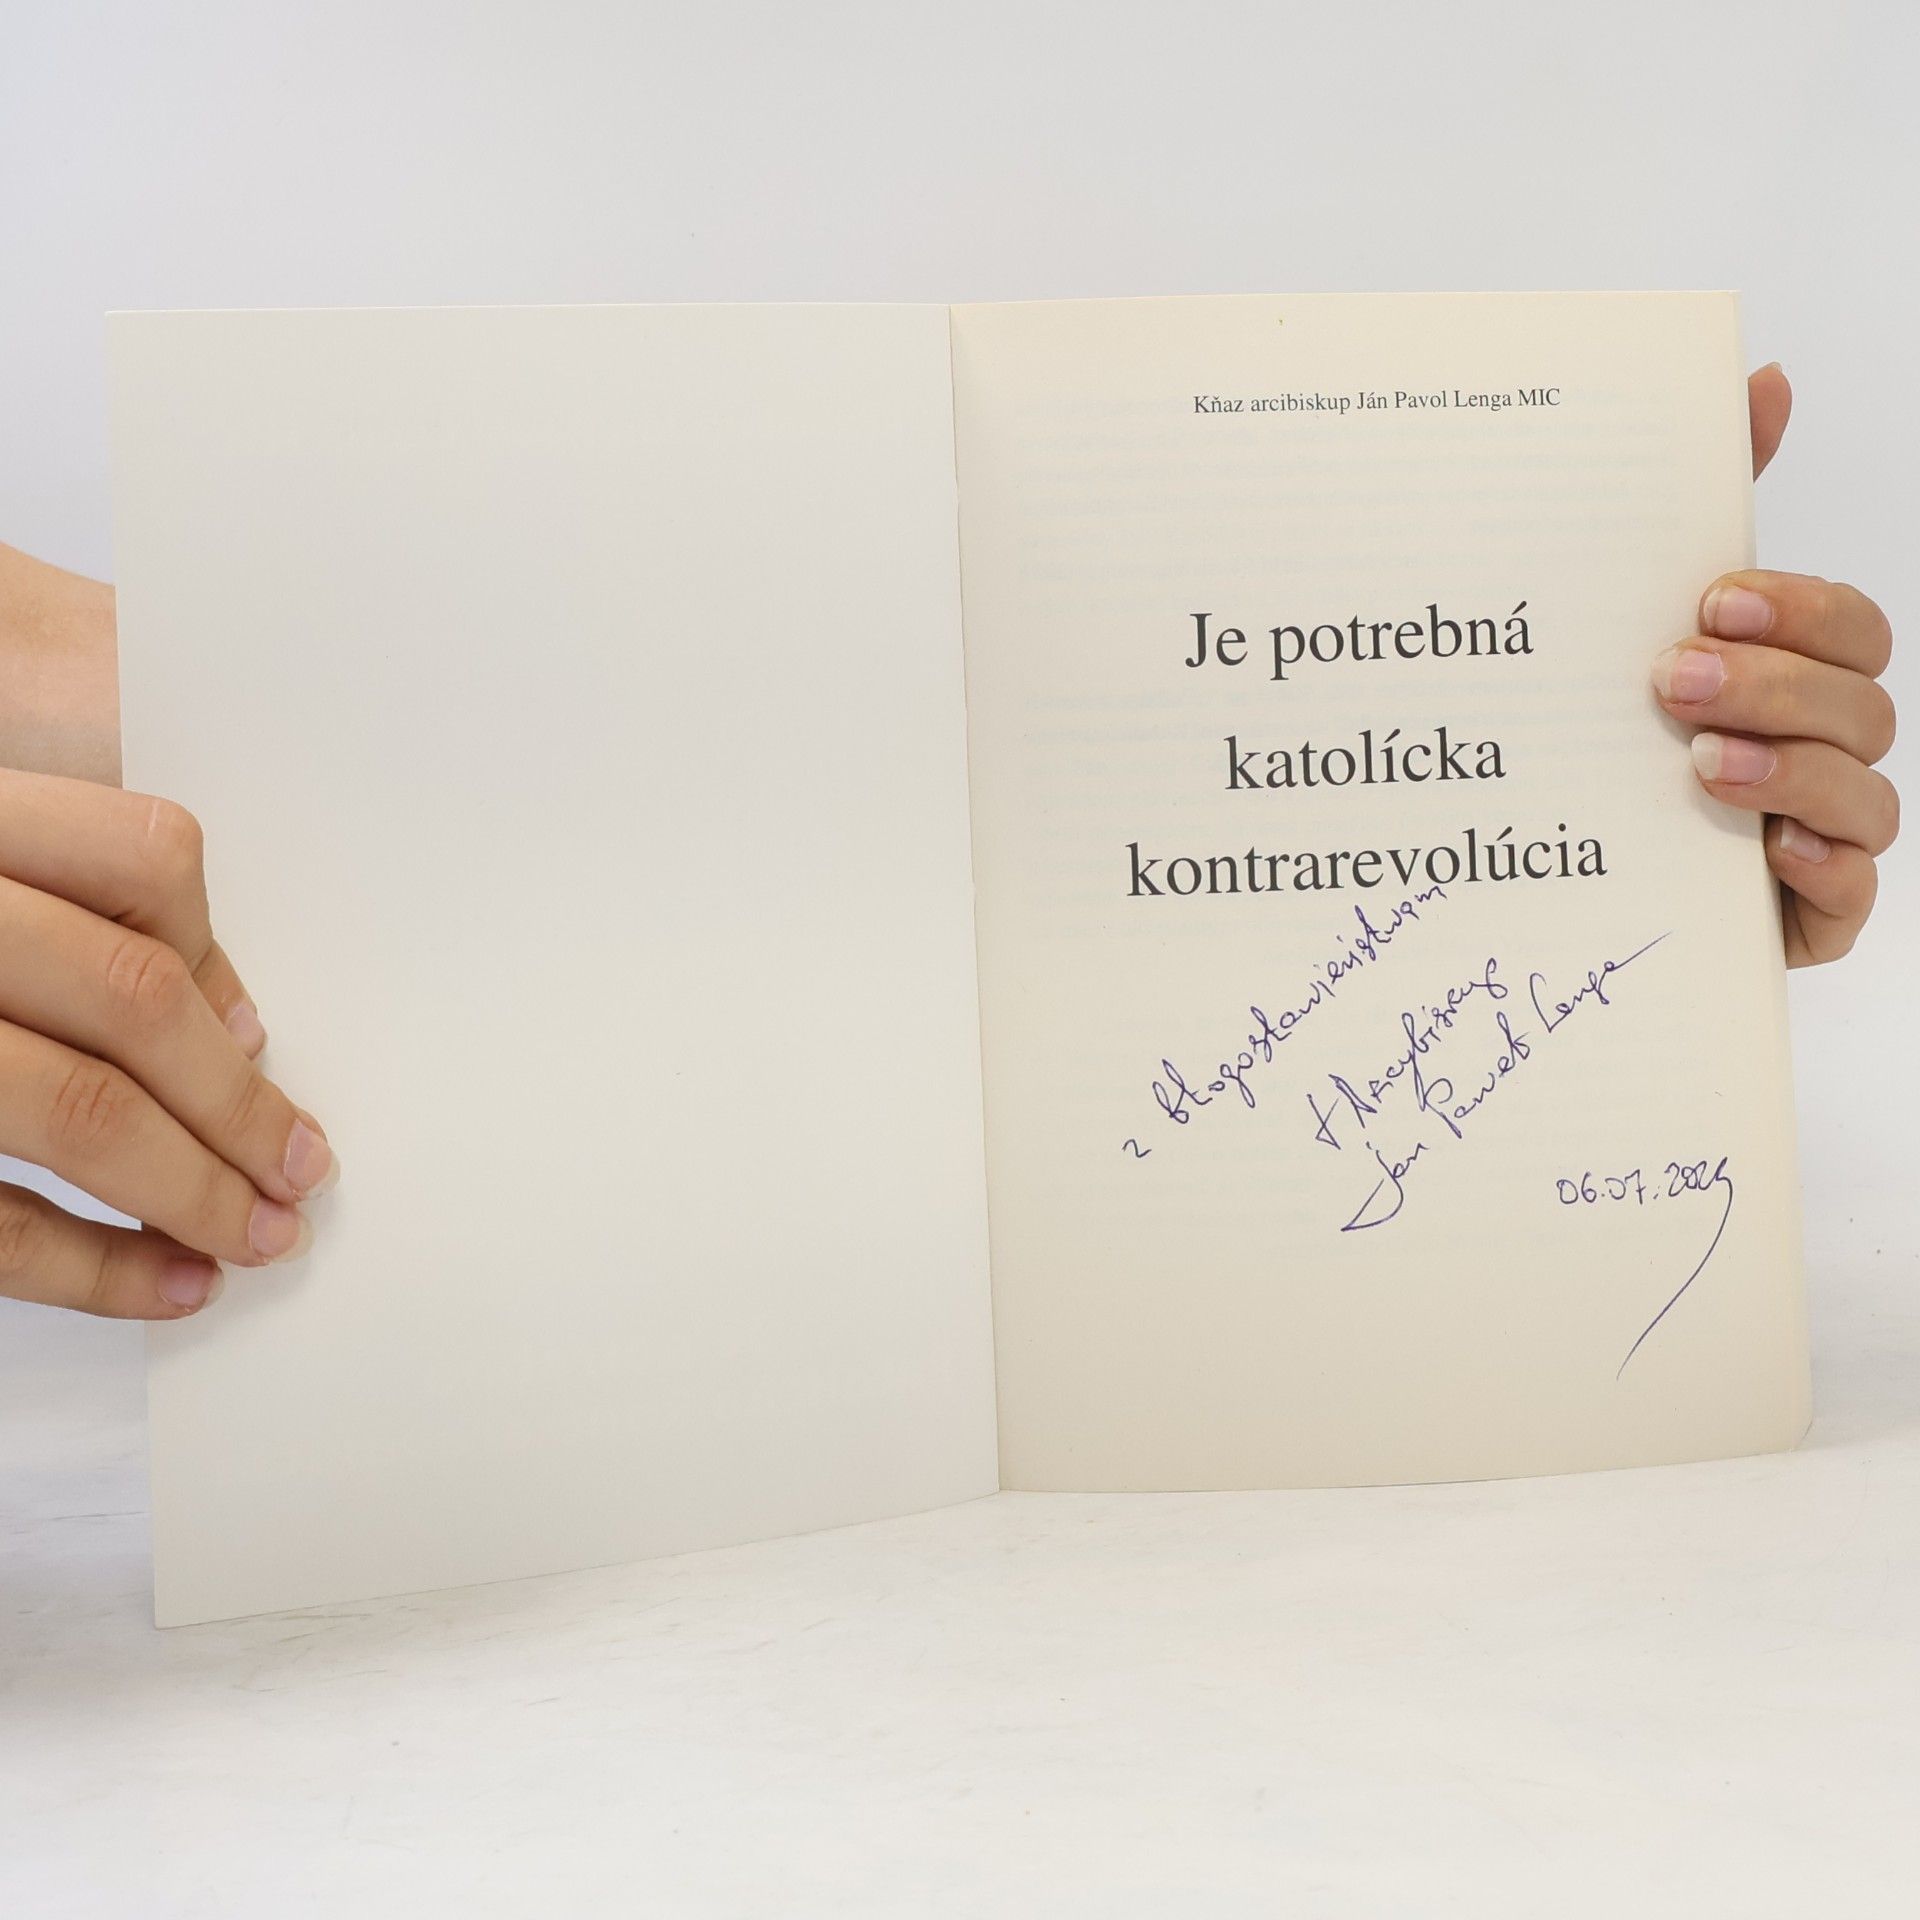 Kňaz arcibiskup Ján Pavol Lenga MIC
Je potrebná
katolícka
kontrarevolúcia
z błogosławieństwem
+ Arcybiskup
Jan Paweł Lenga
06.07.2024